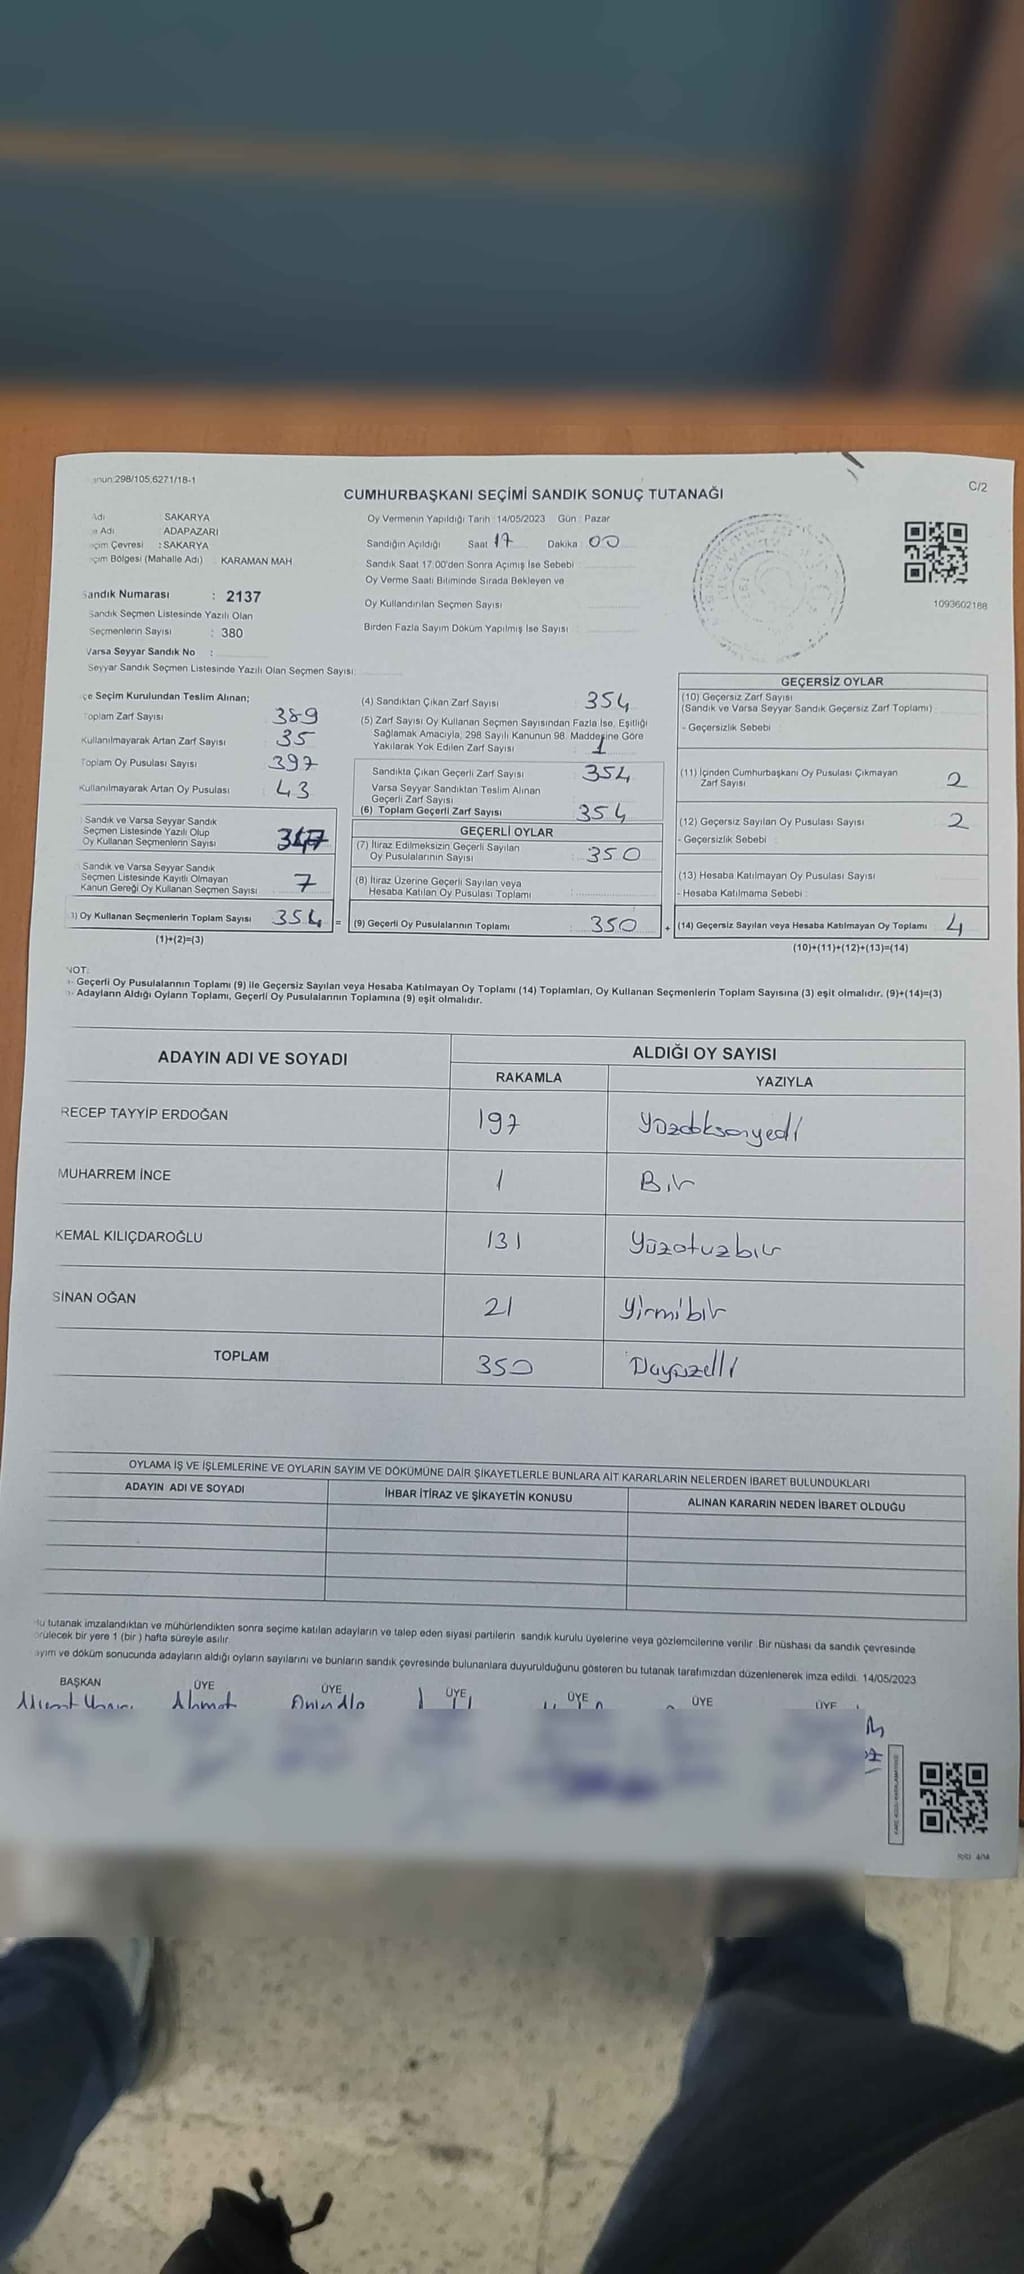 anun:298/105,6271/18-1
C/2
CUMHURBAŞKANI SEÇİMİ SANDIK SONUÇ TUTANAĞI
Adı : SAKARYA
Adı : ADAPAZARI
Çevresi : SAKARYA
Bölgesi (Mahalle Adı) KARAMAN MAH.
Sandık Numarası : 2137
Sandık Seçmen Listesinde Yazılı Olan
Seçmenlerin Sayısı : 380
Varsa Seyyar Sandık No :
Seyyar Sandık Seçmen Listesinde Yazılı Olan Seçmen Sayısı:
Oy Vermenin Yapıldığı Tarih :14/05/2023 Gün : Pazar
Sandığın Açıldığı Saat 17 Dakika : 00
Sandık Saat 17.00'den Sonra Açımış İse Sebebi :
Oy Verme Saati Bitiminde Sırada Bekleyen ve
Oy Kullandırılan Seçmen Sayısı
Birden Fazla Sayım Döküm Yapılmış İse Sayısı :
1093602188
çe Seçim Kurulundan Teslim Alınan;
Toplam Zarf Sayısı 389
Kullanılmayarak Artan Zarf Sayısı 35
Toplam Oy Pusulası Sayısı 397
Kullanılmayarak Artan Oy Pusulası 43
Sandık ve Varsa Seyyar Sandık
Seçmen Listesinde Yazılı Olup
Oy Kullanan Seçmenlerin Sayısı 347
Sandık ve Varsa Seyyar Sandık
Seçmen Listesinde Kayıtlı Olmayan
Kanun Gereği Oy Kullanan Seçmen Sayısı 7
) Oy Kullanan Seçmenlerin Toplam Sayısı 354 =
(1)+(2)=(3)
(4) Sandıktan Çıkan Zarf Sayısı 354
(5) Zarf Sayısı Oy Kullanan Seçmen Sayısından Fazla İse, Eşitliği
Sağlamak Amacıyla, 298 Sayılı Kanunun 98. Maddesine Göre
Yakılarak Yok Edilen Zarf Sayısı
Sandıkta Çıkan Geçerli Zarf Sayısı 354
Varsa Seyyar Sandıktan Teslim Alınan
Geçerli Zarf Sayısı
(6) Toplam Geçerli Zarf Sayısı 354
GEÇERLİ OYLAR
(7) İtiraz Edilmeksizin Geçerli Sayılan
Oy Pusulalarının Sayısı : 350
(8) İtiraz Üzerine Geçerli Sayılan veya
Hesaba Katılan Oy Pusulası Toplamı :
(9) Geçerli Oy Pusulalarının Toplamı : 350 +
GEÇERSİZ OYLAR
(10) Geçersiz Zarf Sayısı
(Sandık ve Varsa Seyyar Sandık Geçersiz Zarf Toplamı) :
- Geçersizlik Sebebi :
(11) İçinden Cumhurbaşkanı Oy Pusulası Çıkmayan
Zarf Sayısı 2
(12) Geçersiz Sayılan Oy Pusulası Sayısı 2
- Geçersizlik Sebebi :
(13) Hesaba Katılmayan Oy Pusulası Sayısı
- Hesaba Katılmama Sebebi :
(14) Geçersiz Sayılan veya Hesaba Katılmayan Oy Toplamı 4
(10)+(11)+(12)+(13)=(14)
NOT:
- Geçerli Oy Pusulalarının Toplamı (9) ile Geçersiz Sayılan veya Hesaba Katılmayan Oy Toplamı (14) Toplamları, Oy Kullanan Seçmenlerin Toplam Sayısına (3) eşit olmalıdır. (9)+(14)=(3)
- Adayların Aldığı Oyların Toplamı, Geçerli Oy Pusulalarının Toplamına (9) eşit olmalıdır.
ADAYIN ADI VE SOYADI
ALDIĞI OY SAYISI
RAKAMLA YAZIYLA
RECEP TAYYİP ERDOĞAN 197 Yüzdoksanyedi
MUHARREM İNCE 1 Bir
KEMAL KILIÇDAROĞLU 131 Yüzotuzbir
SİNAN OĞAN 21 Yirmibir
TOPLAM 350
OYLAMA İŞ VE İŞLEMLERİNE VE OYLARIN SAYIM VE DÖKÜMÜNE DAİR ŞİKAYETLERLE BUNLARA AİT KARARLARIN NELERDEN İBARET BULUNDUKLARI
ADAYIN ADI VE SOYADI İHBAR İTİRAZ VE ŞİKAYETİN KONUSU ALINAN KARARIN NEDEN İBARET OLDUĞU
tutanak imzalandıktan ve mühürlendikten sonra seçime katılan adayların ve talep eden siyasi partilerin sandık kurulu üyelerine veya gözlemcilerine verilir. Bir nüshası da sandık çevresinde
örülecek bir yere 1 (bir ) hafta süreyle asılır.
ayım ve döküm sonucunda adayların aldığı oyların sayılarını ve bunların sandık çevresinde bulunanlara duyurulduğunu gösteren bu tutanak tarafımızdan düzenlenerek imza edildi. 14/05/2023
BAŞKAN ÜYE ÜYE ÜYE ÜYE ÜYE ÜYE
Ahmet